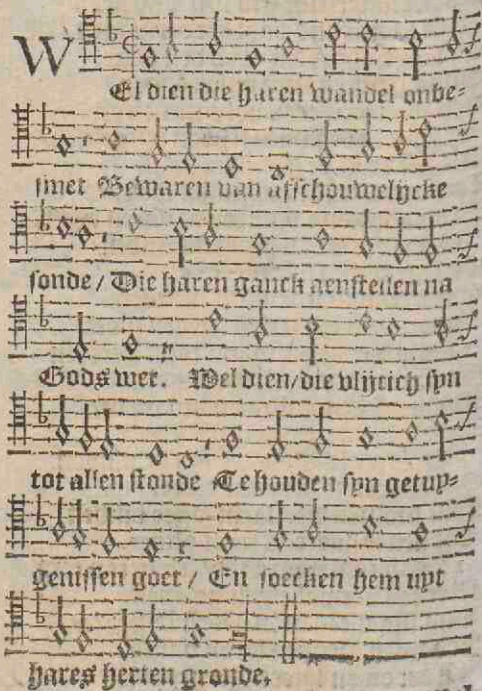 WEl dien die haren wandel onbe=
smet Bewaren van afschouwelijcke
sonde / Die haren ganck aenstellen na
Gods wet. Wel dien / die vlijtich syn
tot allen stonde Te houden syn getuy=
genissen goet / En soecken hem uyt
hares herten gronde.